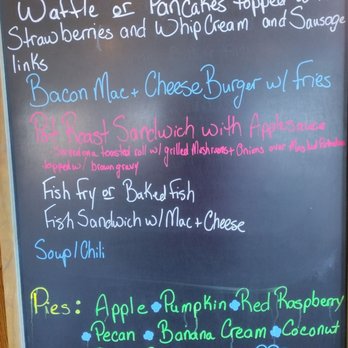 Waffle or Pancakes topped w/
Strawberries and Whip Cream and Sausage
links
Bacon Mac + Cheese Burger w/ Fries
Pot Roast Sandwich with Applesauce
toasted roll w/ grilled Mushrooms + Onions over
topped w/ brown gravy
Fish Fry or Baked Fish
Fish Sandwich w/ Mac + Cheese
Soup / Chili
Pies: Apple • Pumpkin • Red Raspberry
• Pecan • Banana Cream • Coconut